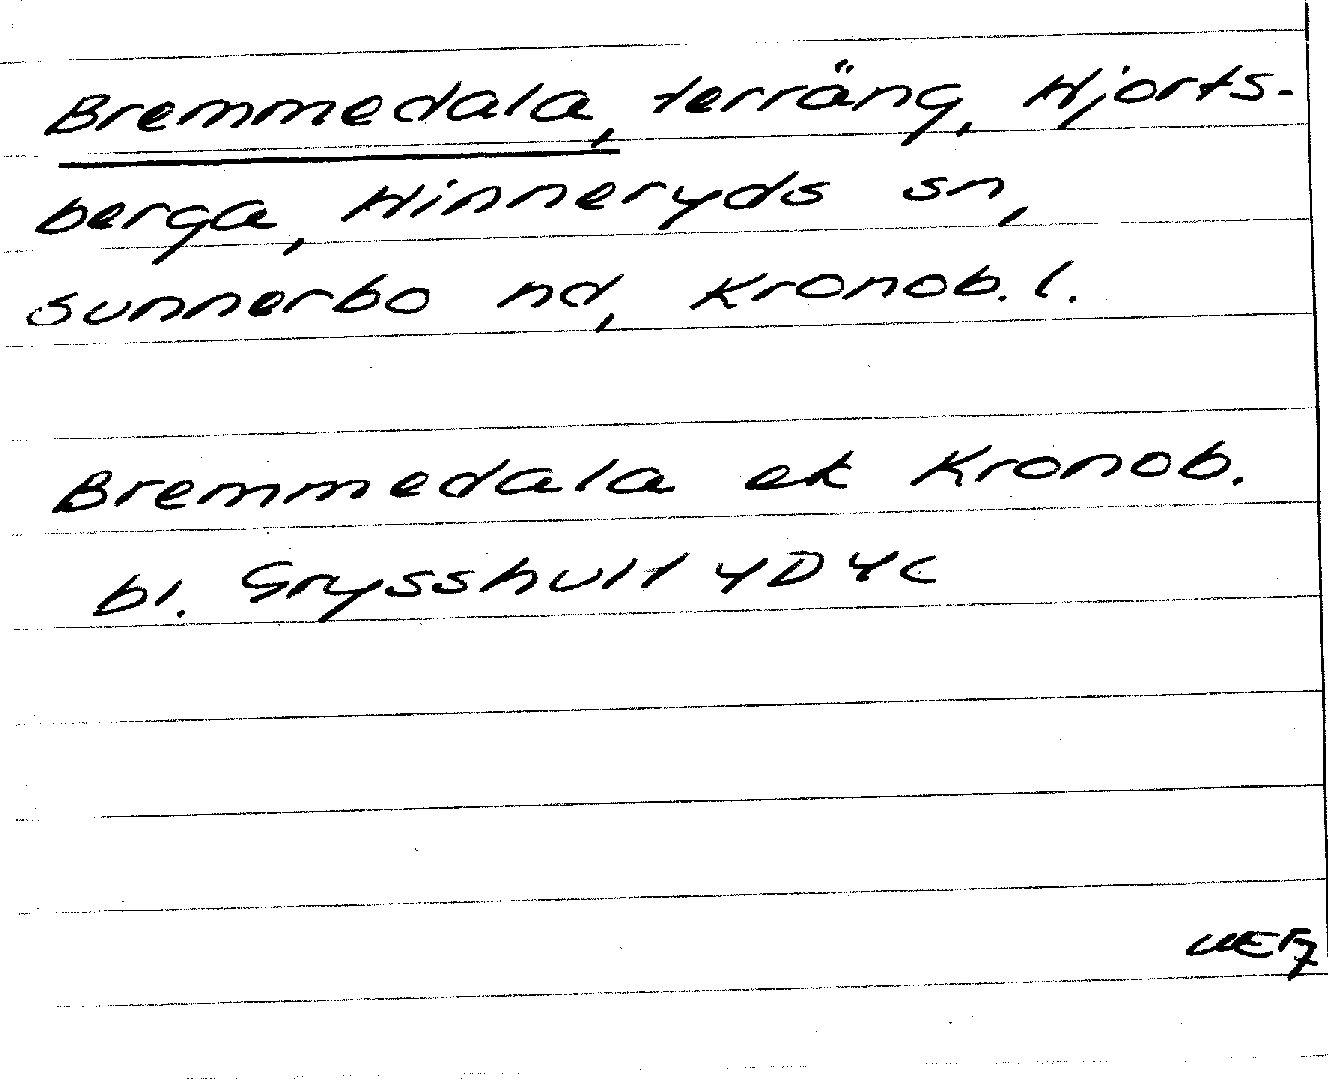 Bremmedala, terräng, Hjorts-
berga, Hinneryds sn,
Sunnerbo hd, Kronob. l.
Bremmedala ek Kronob.
bl. Grysshult 4D 4c